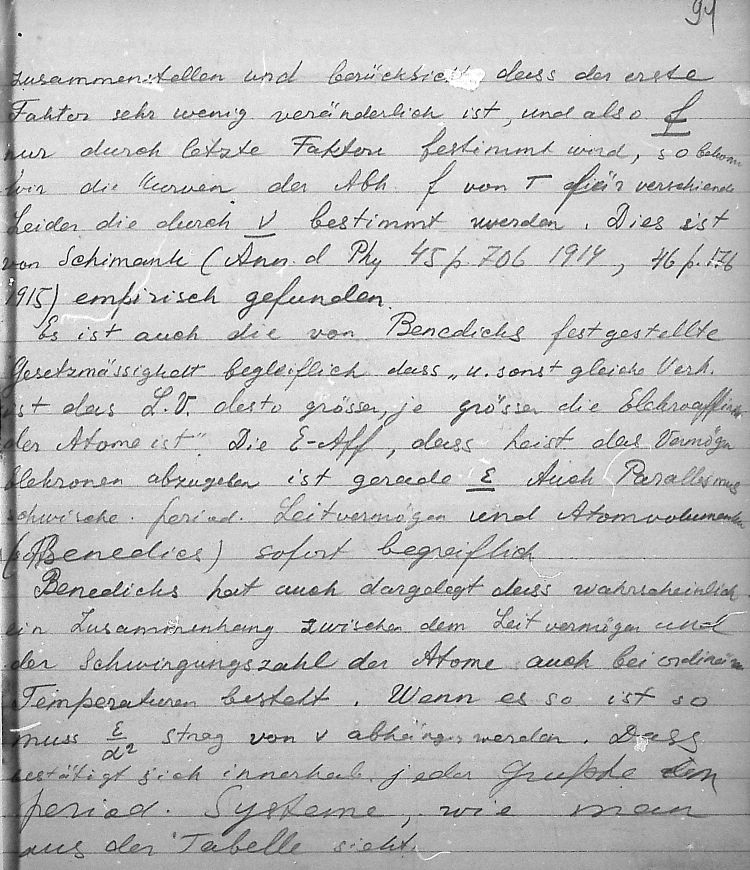 91
zusammenstellen und berücksicht dass der erste
Faktor sehr wenig veränderlich ist, und also f
nur durch letzte Faktor bestimmt wird, so bekom
wir die Kurven der Abh. f von T für verschiende
Leider die durch ν bestimmt werden. Dies ist
von Schimank (Ann. d Phy 45 p. 706 1914, 46 p. 176
1915) empirisch gefunden.
Es ist auch die von Benedicks festgestellte
Gesetzmässigkeit begleiflich dass „u. sonst gleiche Verh.
ist das L.V. desto grösser, je grösser die Elekroaffinit
der Atome ist". Die E-Aff, dass heist das Vermögen
Elekronen abzugeben ist gerade ε Auch Parallesmus
schwische. period. Leitvermögen und Atomvolumenten
Benedics) sofort begreiflich
Benedicks hat auch dargelegt dass wahrscheinlich
ein Zusammenhang zwischen dem Leitvermögen und
der Schwingungszahl der Atome auch bei ordinären
Temperaturen bestelt. Wenn es so ist so
muss ε/d² streg von ν abhängig werden. Dass
bestätigt sich innerhalb. jeder Gruppe den
period. Systeme, wie man
aus der Tabelle sieht.